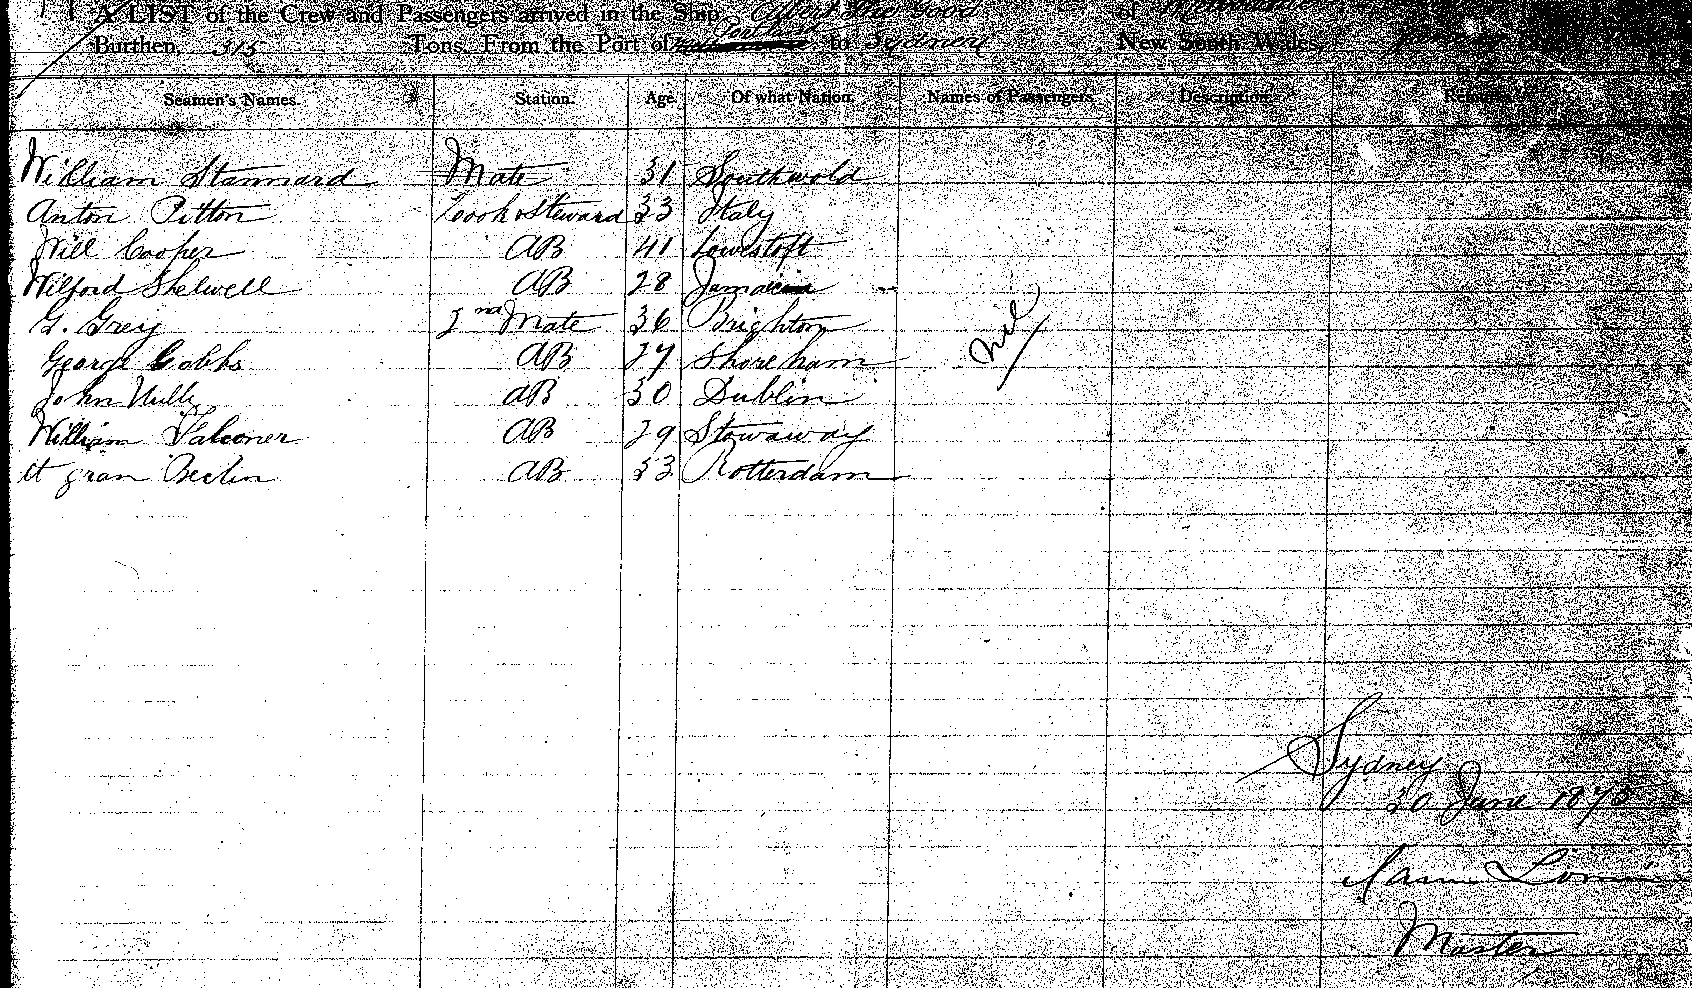 A LIST of the Crew and Passengers arrived in the Ship Albert the Good of
Burthen, 315 Tons, From the Port of Portland to Sydney New South Wales,
Seamen's Names. Station. Age Of what Nation. Names of Passengers. Description. Remarks
William Stannard Mate 31 Southwold
Anton Pitton Cook & Steward 33 Italy
Will Cooper AB 41 Lowestoft
Wilford Shelwell AB 28 Jamaica
G. Grey 2nd Mate 36 Brighton
George Cobbs AB 27 Shoreham
nil
John AB 30 Dublin
William Falconer AB 29 Stowaway
AB 33 Rotterdam
Sydney
30 June 1873
Master